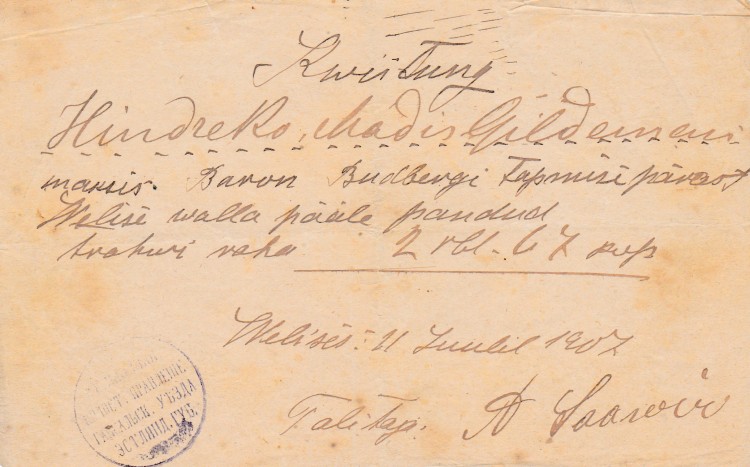 Kwiitung
Hindreko, Madis Gildemani
maksis. Baron Budbergi Tapmise pärast
Welise walla pääle pandud
trahwi raha 2 rbl. 67 kop
Welises: 11 Juulil 1907
Talitaja: A Saarwir
ВОЛОСТ. ПРАВЛЕНІЕ
ГАПСАЛЬСК. УѢЗДА
ЭСТЛЯНД. ГУБ.